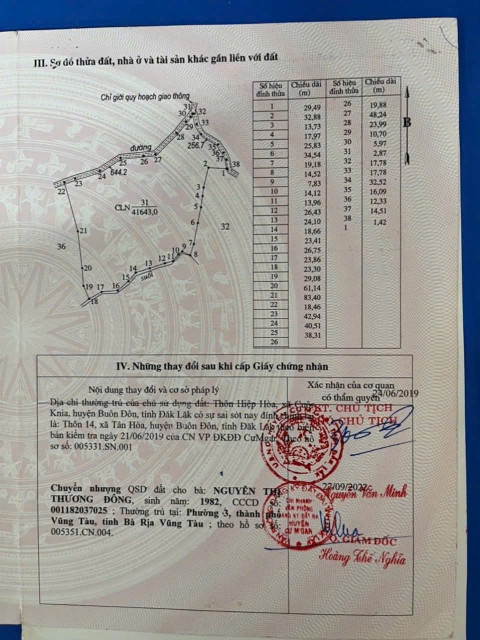 III. Sơ đồ thửa đất, nhà ở và tài sản khác gắn liền với đất
Chỉ giới quy hoạch giao thông
đường
644,2
256,7
CLN 31
41643,0
36
32
suối
B
Số hiệu đỉnh thửa Chiều dài (m) Số hiệu đỉnh thửa Chiều dài (m)
1 29,49 26 19,88
2 32,88 27 48,24
3 13,73 28 23,99
4 17,97 29 10,70
5 25,83 30 5,97
6 34,54 31 2,87
7 19,18 32 17,78
8 14,52 33 17,78
9 7,83 34 32,52
10 14,12 35 16,09
11 13,96 36 12,33
12 26,43 37 14,51
13 24,10 38 1,42
14 18,66 1
15 23,41
16 26,75
17 23,86
18 23,30
19 29,08
20 61,14
21 83,40
22 18,46
23 42,94
24 40,51
25 38,31
IV. Những thay đổi sau khi cấp Giấy chứng nhận
Nội dung thay đổi và cơ sở pháp lý
Xác nhận của cơ quan
có thẩm quyền
24/06/2019
Địa chỉ thường trú của chủ sử dụng đất: Thôn Hiệp Hòa, xã Cuôr
Knia, huyện Buôn Đôn, tỉnh Đắk Lắk có sự sai sót nay đính chính lại
là: Thôn 14, xã Tân Hòa, huyện Buôn Đôn, tỉnh Đắk Lắk theo biên
bản kiểm tra ngày 21/06/2019 của CN VP ĐKĐĐ CưMgar. Theo hồ
sơ số: 005331.SN.001
KT. CHỦ TỊCH
PHÓ CHỦ TỊCH
Nguyễn Văn Minh
Chuyển nhượng QSD đất cho bà: NGUYỄN THỊ
THƯƠNG ĐÔNG, sinh năm: 1982, CCCD số:
001182037025 ; Thường trú tại: Phường 3, thành phố
Vũng Tàu, tỉnh Bà Rịa Vũng Tàu ; theo hồ sơ số:
005351.CN.004.
22/09/2022
CHI NHÁNH
VĂN PHÒNG
ĐĂNG KÝ ĐẤT ĐAI
HUYỆN
CƯ M'GAR
GIÁM ĐỐC
Hoàng Thế Nghĩa